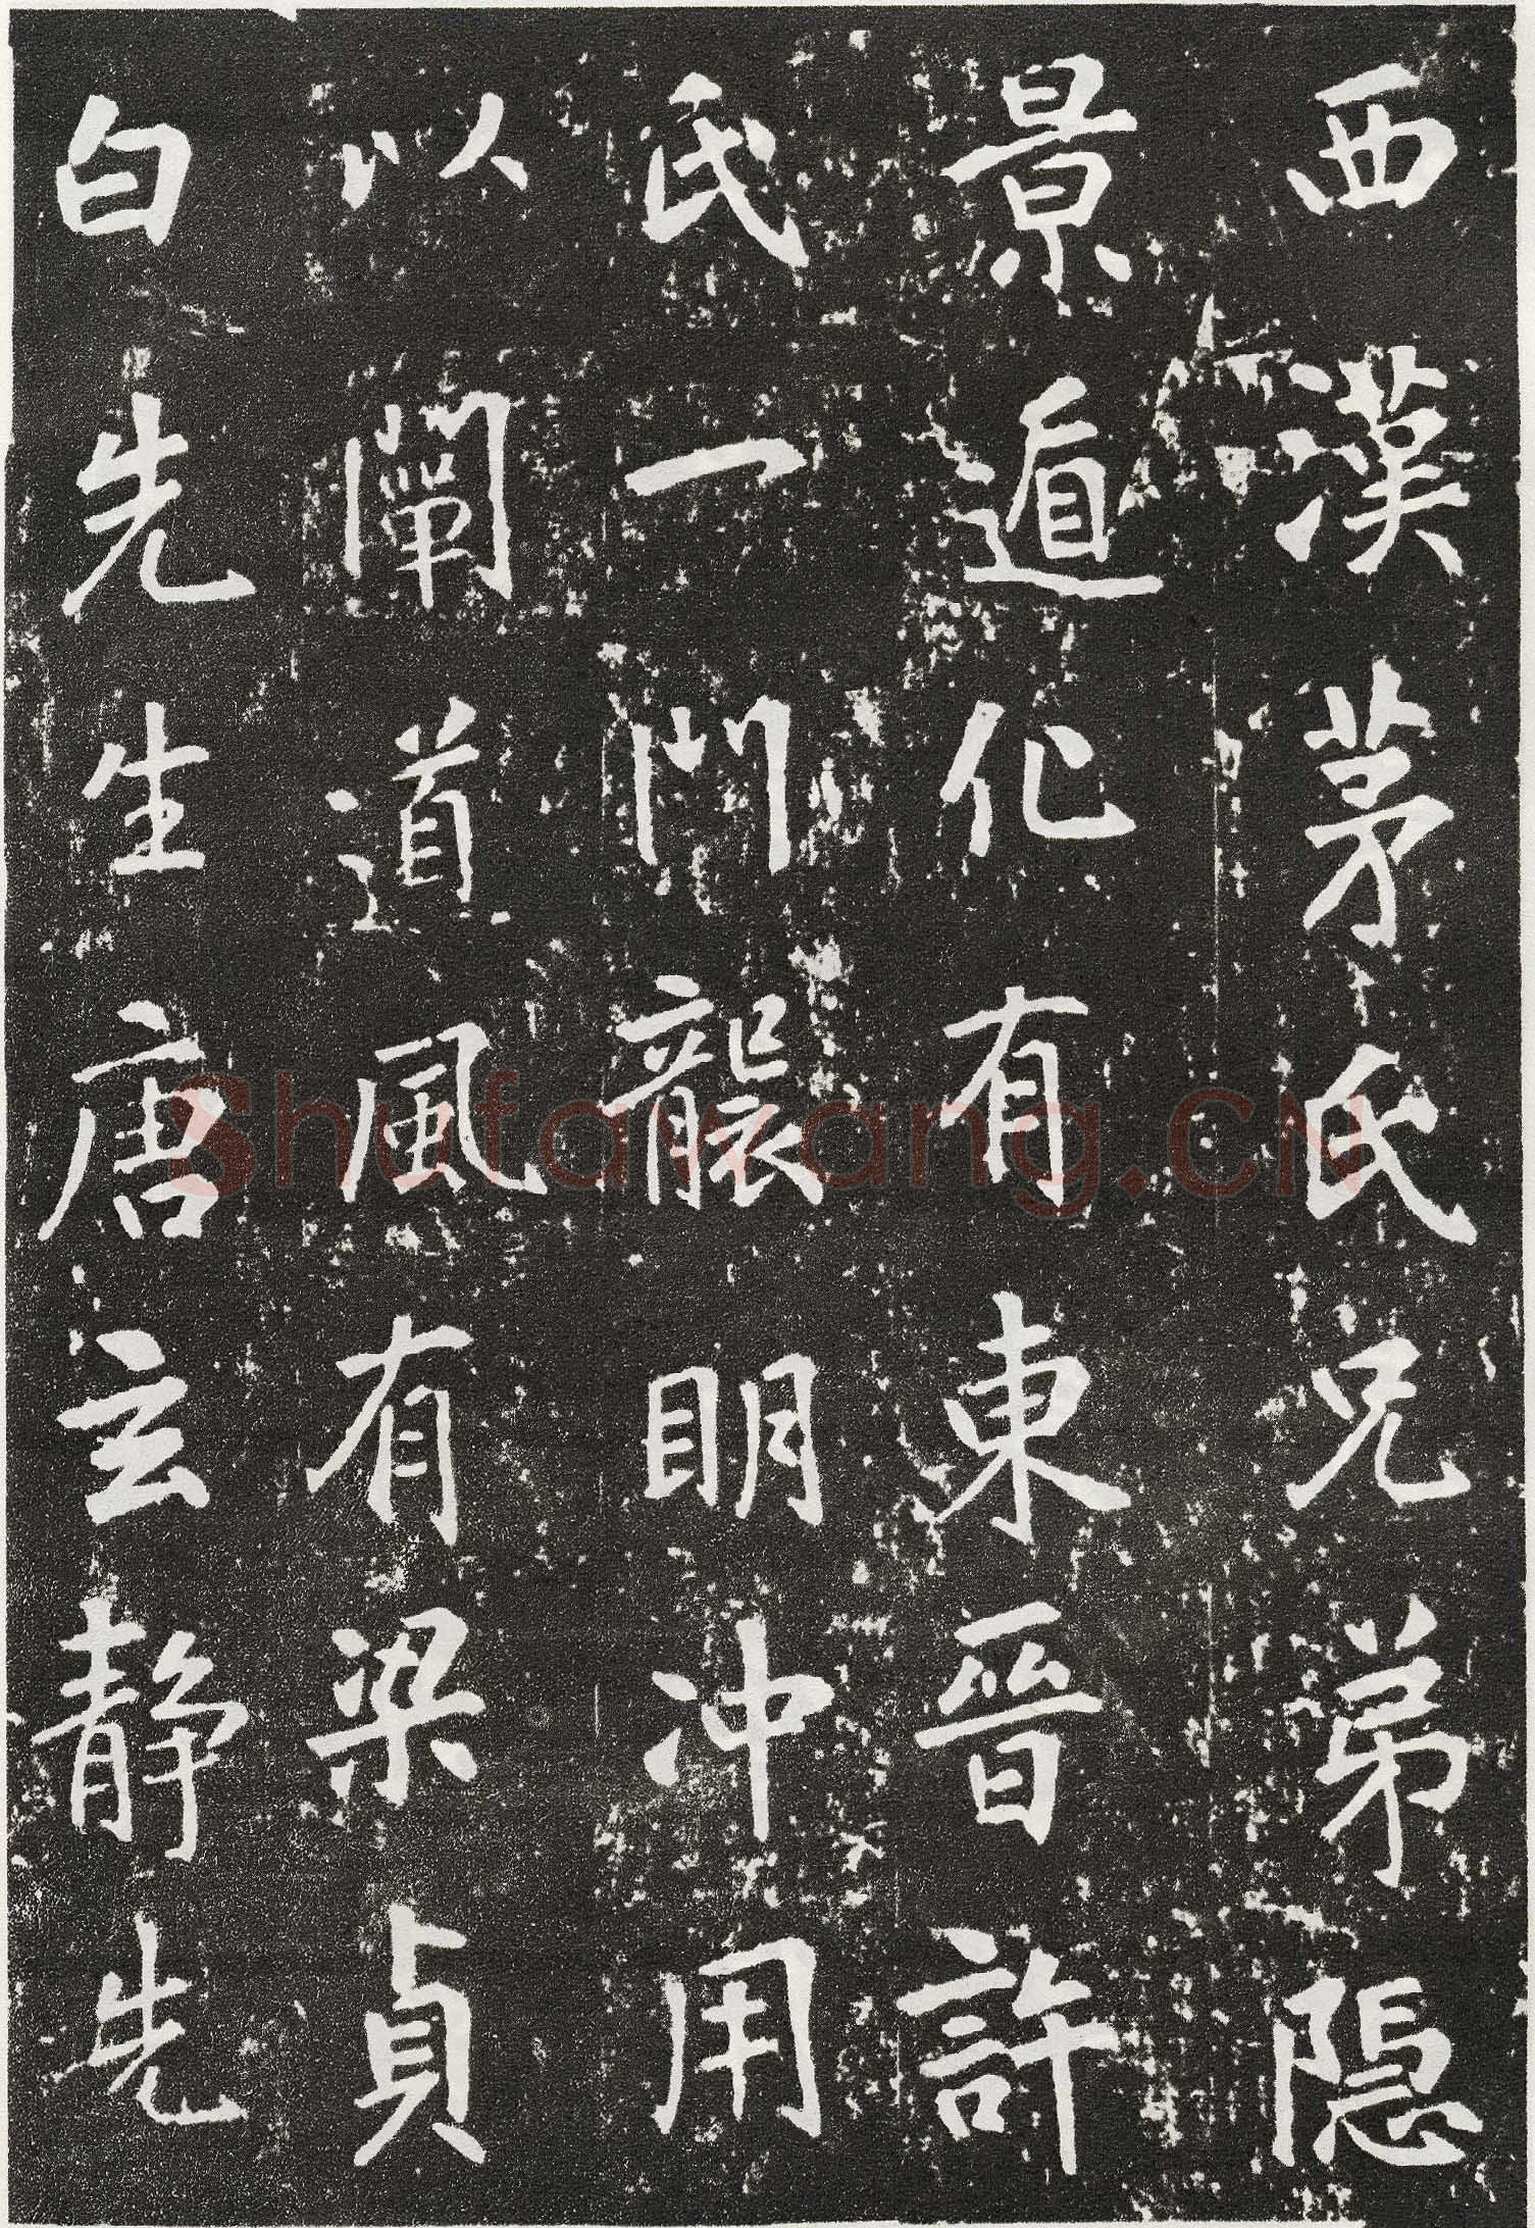 西漢茅氏兄弟隱
景遁化有東晉許
氏一門襲明冲用
以闡道風有梁貞
白先生唐玄靜先
Shufawang.CN